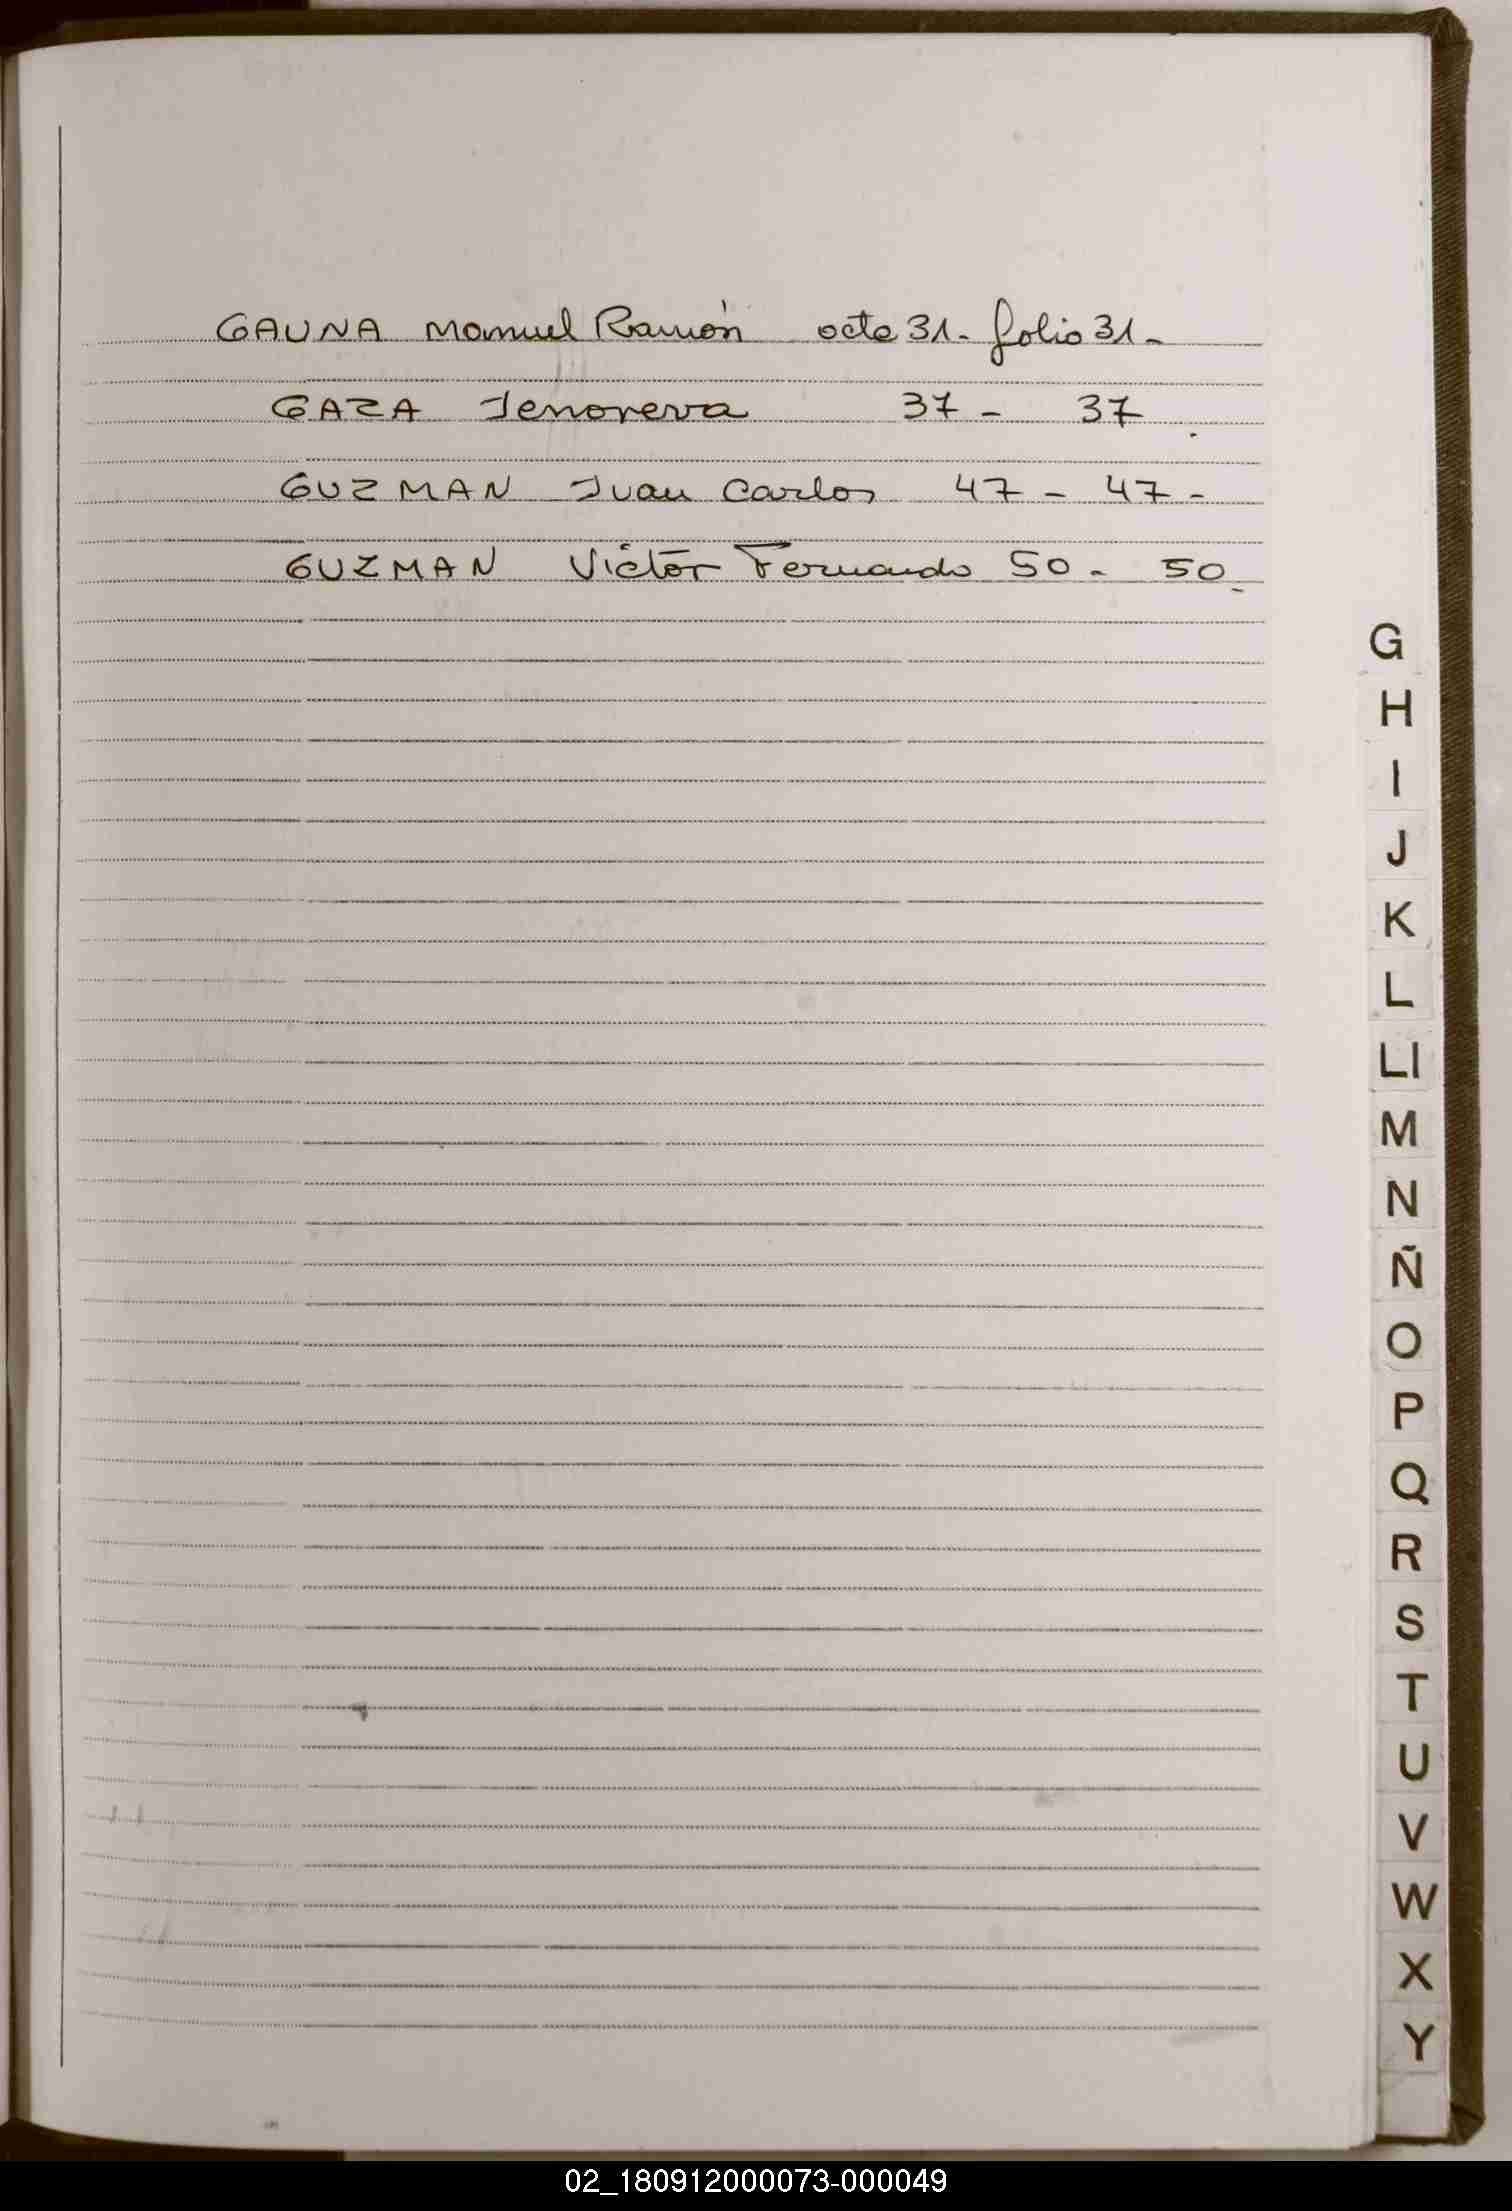 GAUNA Manuel Ramón acta 31. folio 31.
GAZA Jenoveva 37 - 37.
GUZMAN Juan Carlos 47 - 47 -
GUZMAN Victor Fernando 50. 50.
G
H
I
J
K
L
Ll
M
N
Ñ
O
P
Q
R
S
T
U
V
W
X
Y
02_180912000073-000049